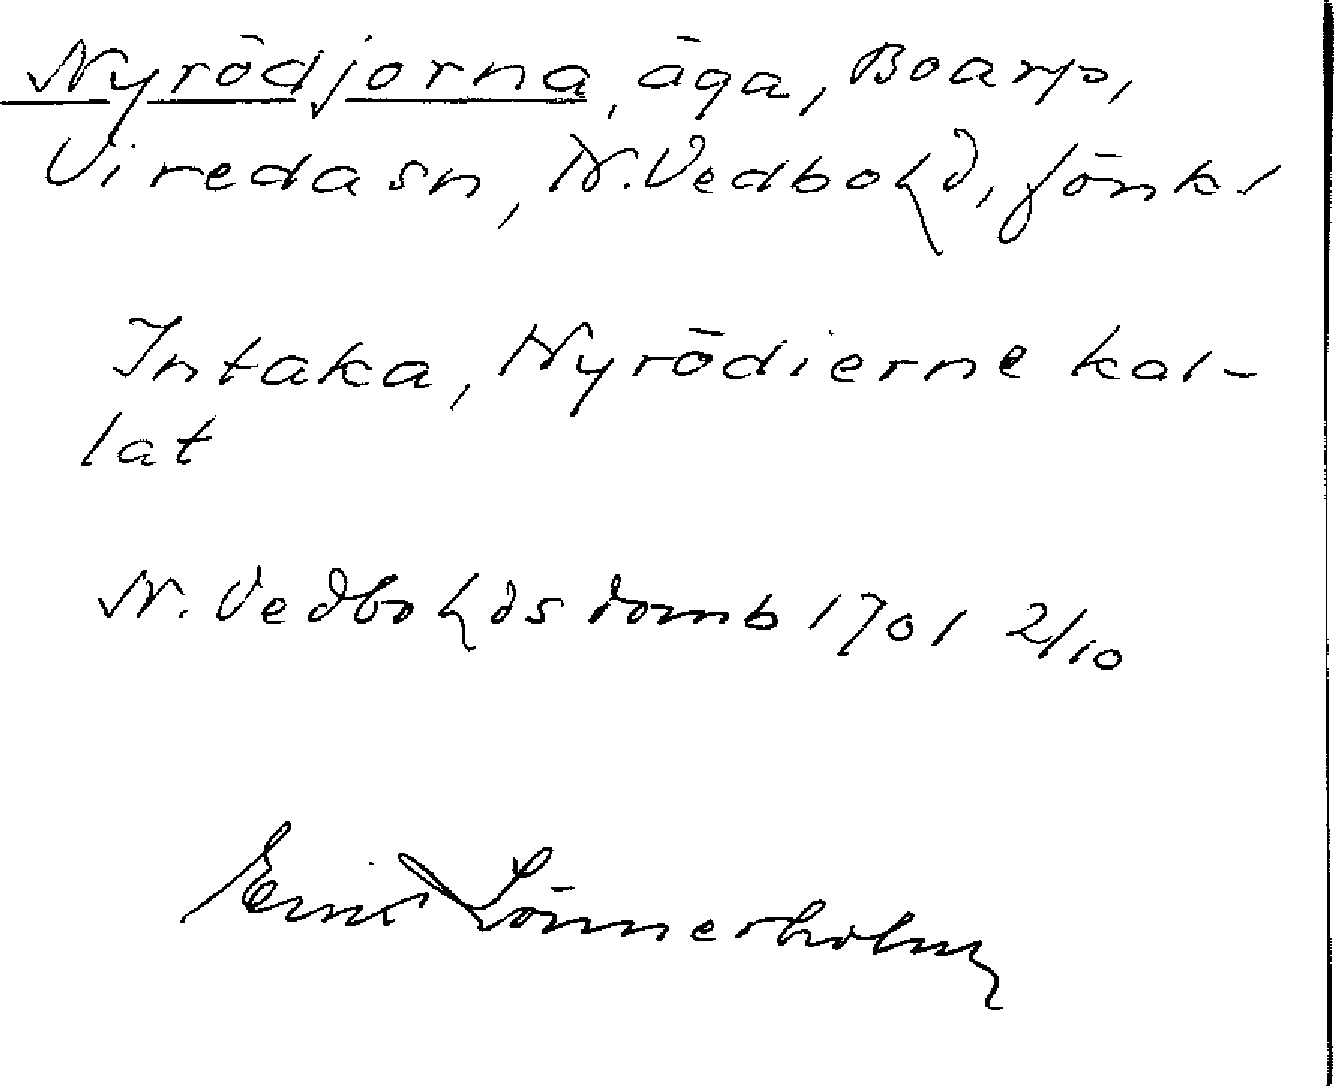 Nyrödjorna, äga, Boarp,
Viredasn, N. Vedbohd, Jönk.l
Intaka, Nyrödierne kal-
lat
N. Vedbohds domb 1701 2/10
Erik Lönnerholm